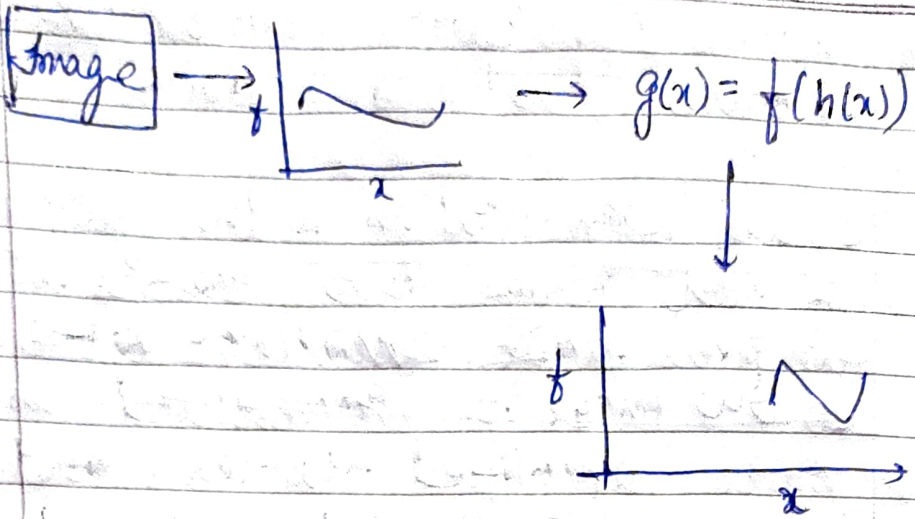 Image
f
x
g(x) = f(h(x))
f
x